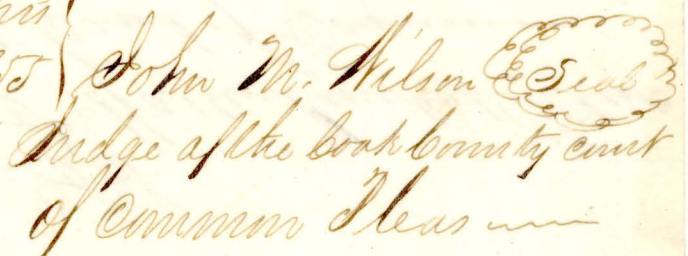 John M. Wilson Seal
Judge of the Cook County court
of Common Pleas